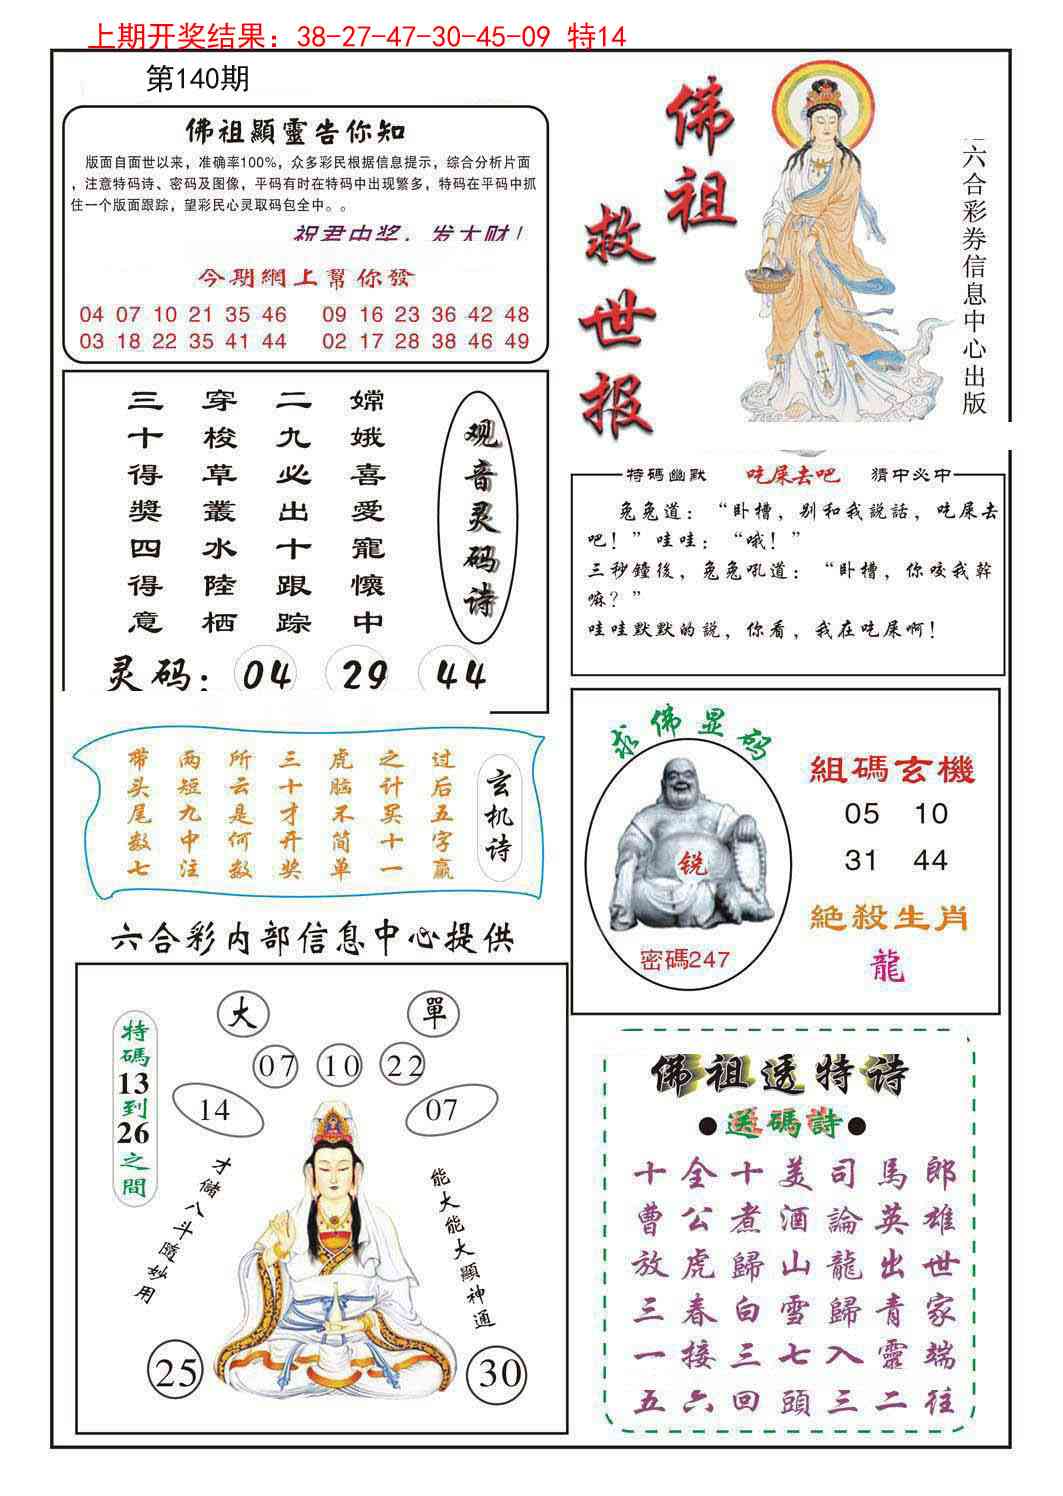 上期开奖结果：38-27-47-30-45-09 特14
第140期
佛祖顯靈告你知
版面自面世以来，准确率100%，众多彩民根据信息提示，综合分析片面
，注意特码诗、密码及图像，平码有时在特码中出现繁多，特码在平码中抓
住一个版面跟踪，望彩民心灵取码包全中。。
祝君中奖，发大财！
今期網上幫你發
04 07 10 21 35 46 09 16 23 36 42 48
03 18 22 35 41 44 02 17 28 38 46 49
佛祖
救世报
六合彩券信息中心出版
观音灵码诗
嫦娥喜愛寵懷中
二九必出十跟踪
穿梭草叢水陸栖
三十得獎四得意
灵码：04 29 44
特碼幽默 吃屎去吧 猜中必中
兔兔道：“卧槽，别和我説話，吃屎去
吧！”哇哇：“哦！”
三秒鐘後，兔兔吼道：“卧槽，你咬我幹
嘛？”
哇哇默默的說，你看，我在吃屎啊！
玄机诗
过后五字赢
之计买十一
虎脑不简单
三十才开奖
所云是何数
两短九中注
带头尾数七
求佛显码
锐
密碼247
組碼玄機
05 10
31 44
絕殺生肖
龍
六合彩内部信息中心提供
特碼13到26之間
大 單
07 10 22
14 07
才儲八斗隨妙用
能大能大顯神通
25 30
佛祖透特诗
●送碼詩●
十全十美司馬郎
曹公煮酒論英雄
放虎歸山龍出世
三春白雪歸青家
一接三七入靈端
五六回頭三二往